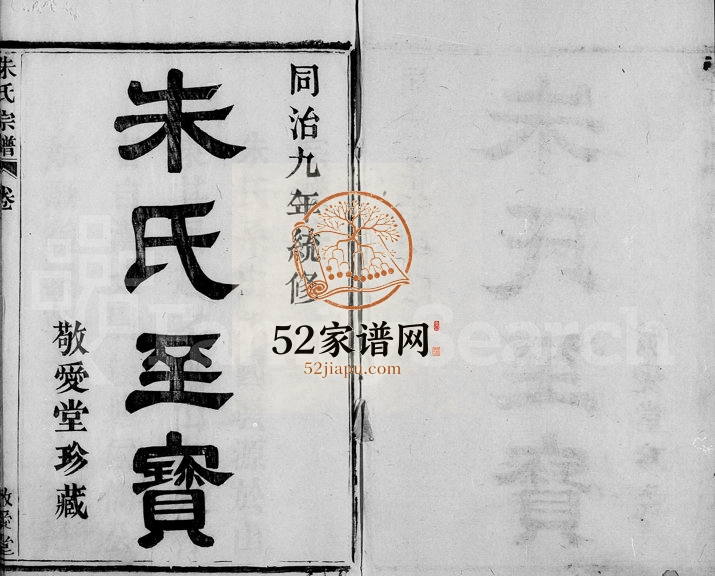 同治九年統修
朱氏至寶
敬愛堂珍藏
朱氏宗譜
卷
敬愛堂
52家谱网
52jiapu.com
Search